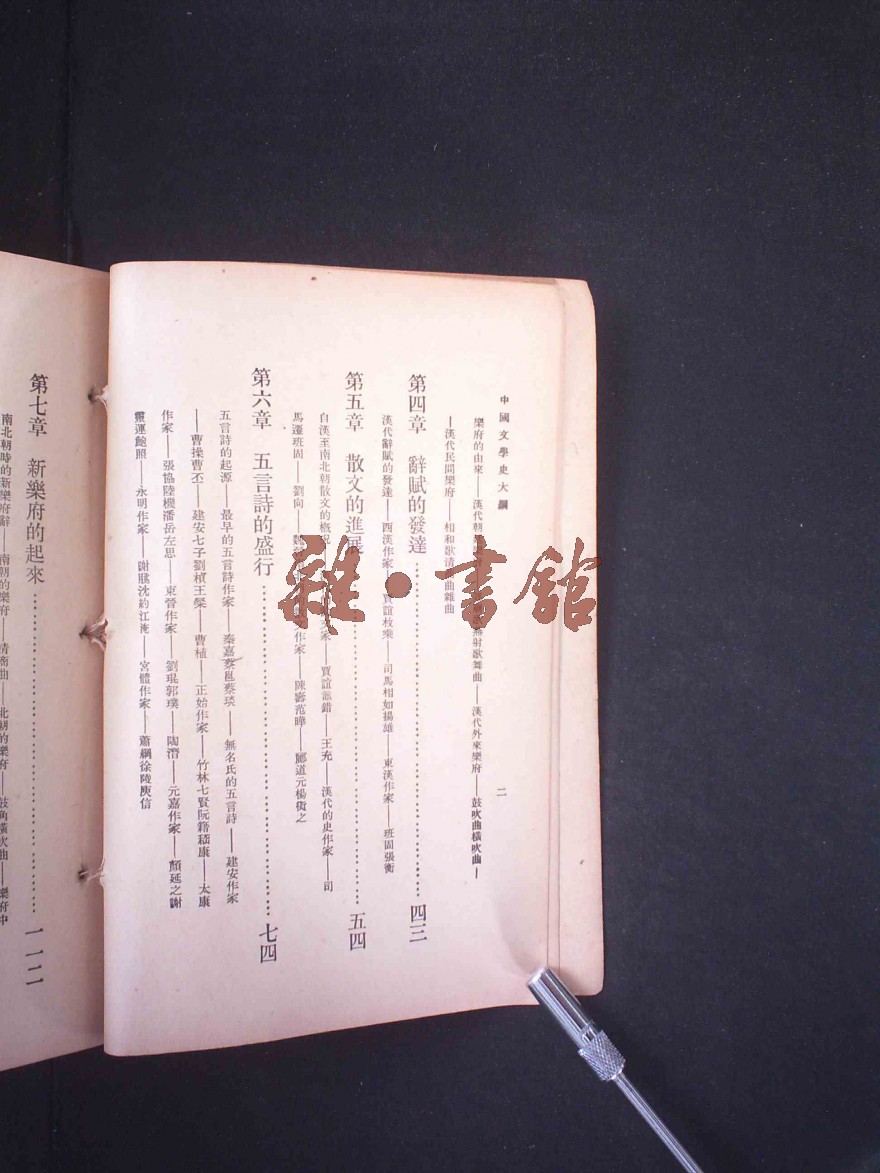 中國文學史大綱
二
樂府的由來——漢代朝 射歌舞曲——漢代外來樂府——鼓吹曲橫吹曲—
—漢代民間樂府——相和歌清 曲雜曲
第四章 辭賦的發達 四三
漢代辭賦的發達——西漢作家——賈誼枚乘——司馬相如揚雄——東漢作家——班固張衡
第五章 散文的進展 五四
自漢至南北朝散文的概況 家——賈誼鼂錯——王充——漢代的史作家——司
馬遷班固——劉向——魏 作家——陳壽范曄——酈道元楊衒之
第六章 五言詩的盛行 七四
五言詩的起源——最早的五言詩作家——秦嘉蔡邕蔡琰——無名氏的五言詩——建安作家
——曹操曹丕——建安七子劉楨王粲——曹植——正始作家——竹林七賢阮籍嵇康——太康
作家——張協陸機潘岳左思——東晉作家——劉琨郭璞——陶潛——元嘉作家——顏延之謝
靈運鮑照——永明作家——謝朓沈約江淹——宮體作家——蕭綱徐陵庾信
第七章 新樂府的起來 一一二
南北朝時的新樂府辭——南朝的樂府——清商曲——北朝的樂府——鼓角橫吹曲——樂府中
雜·書館